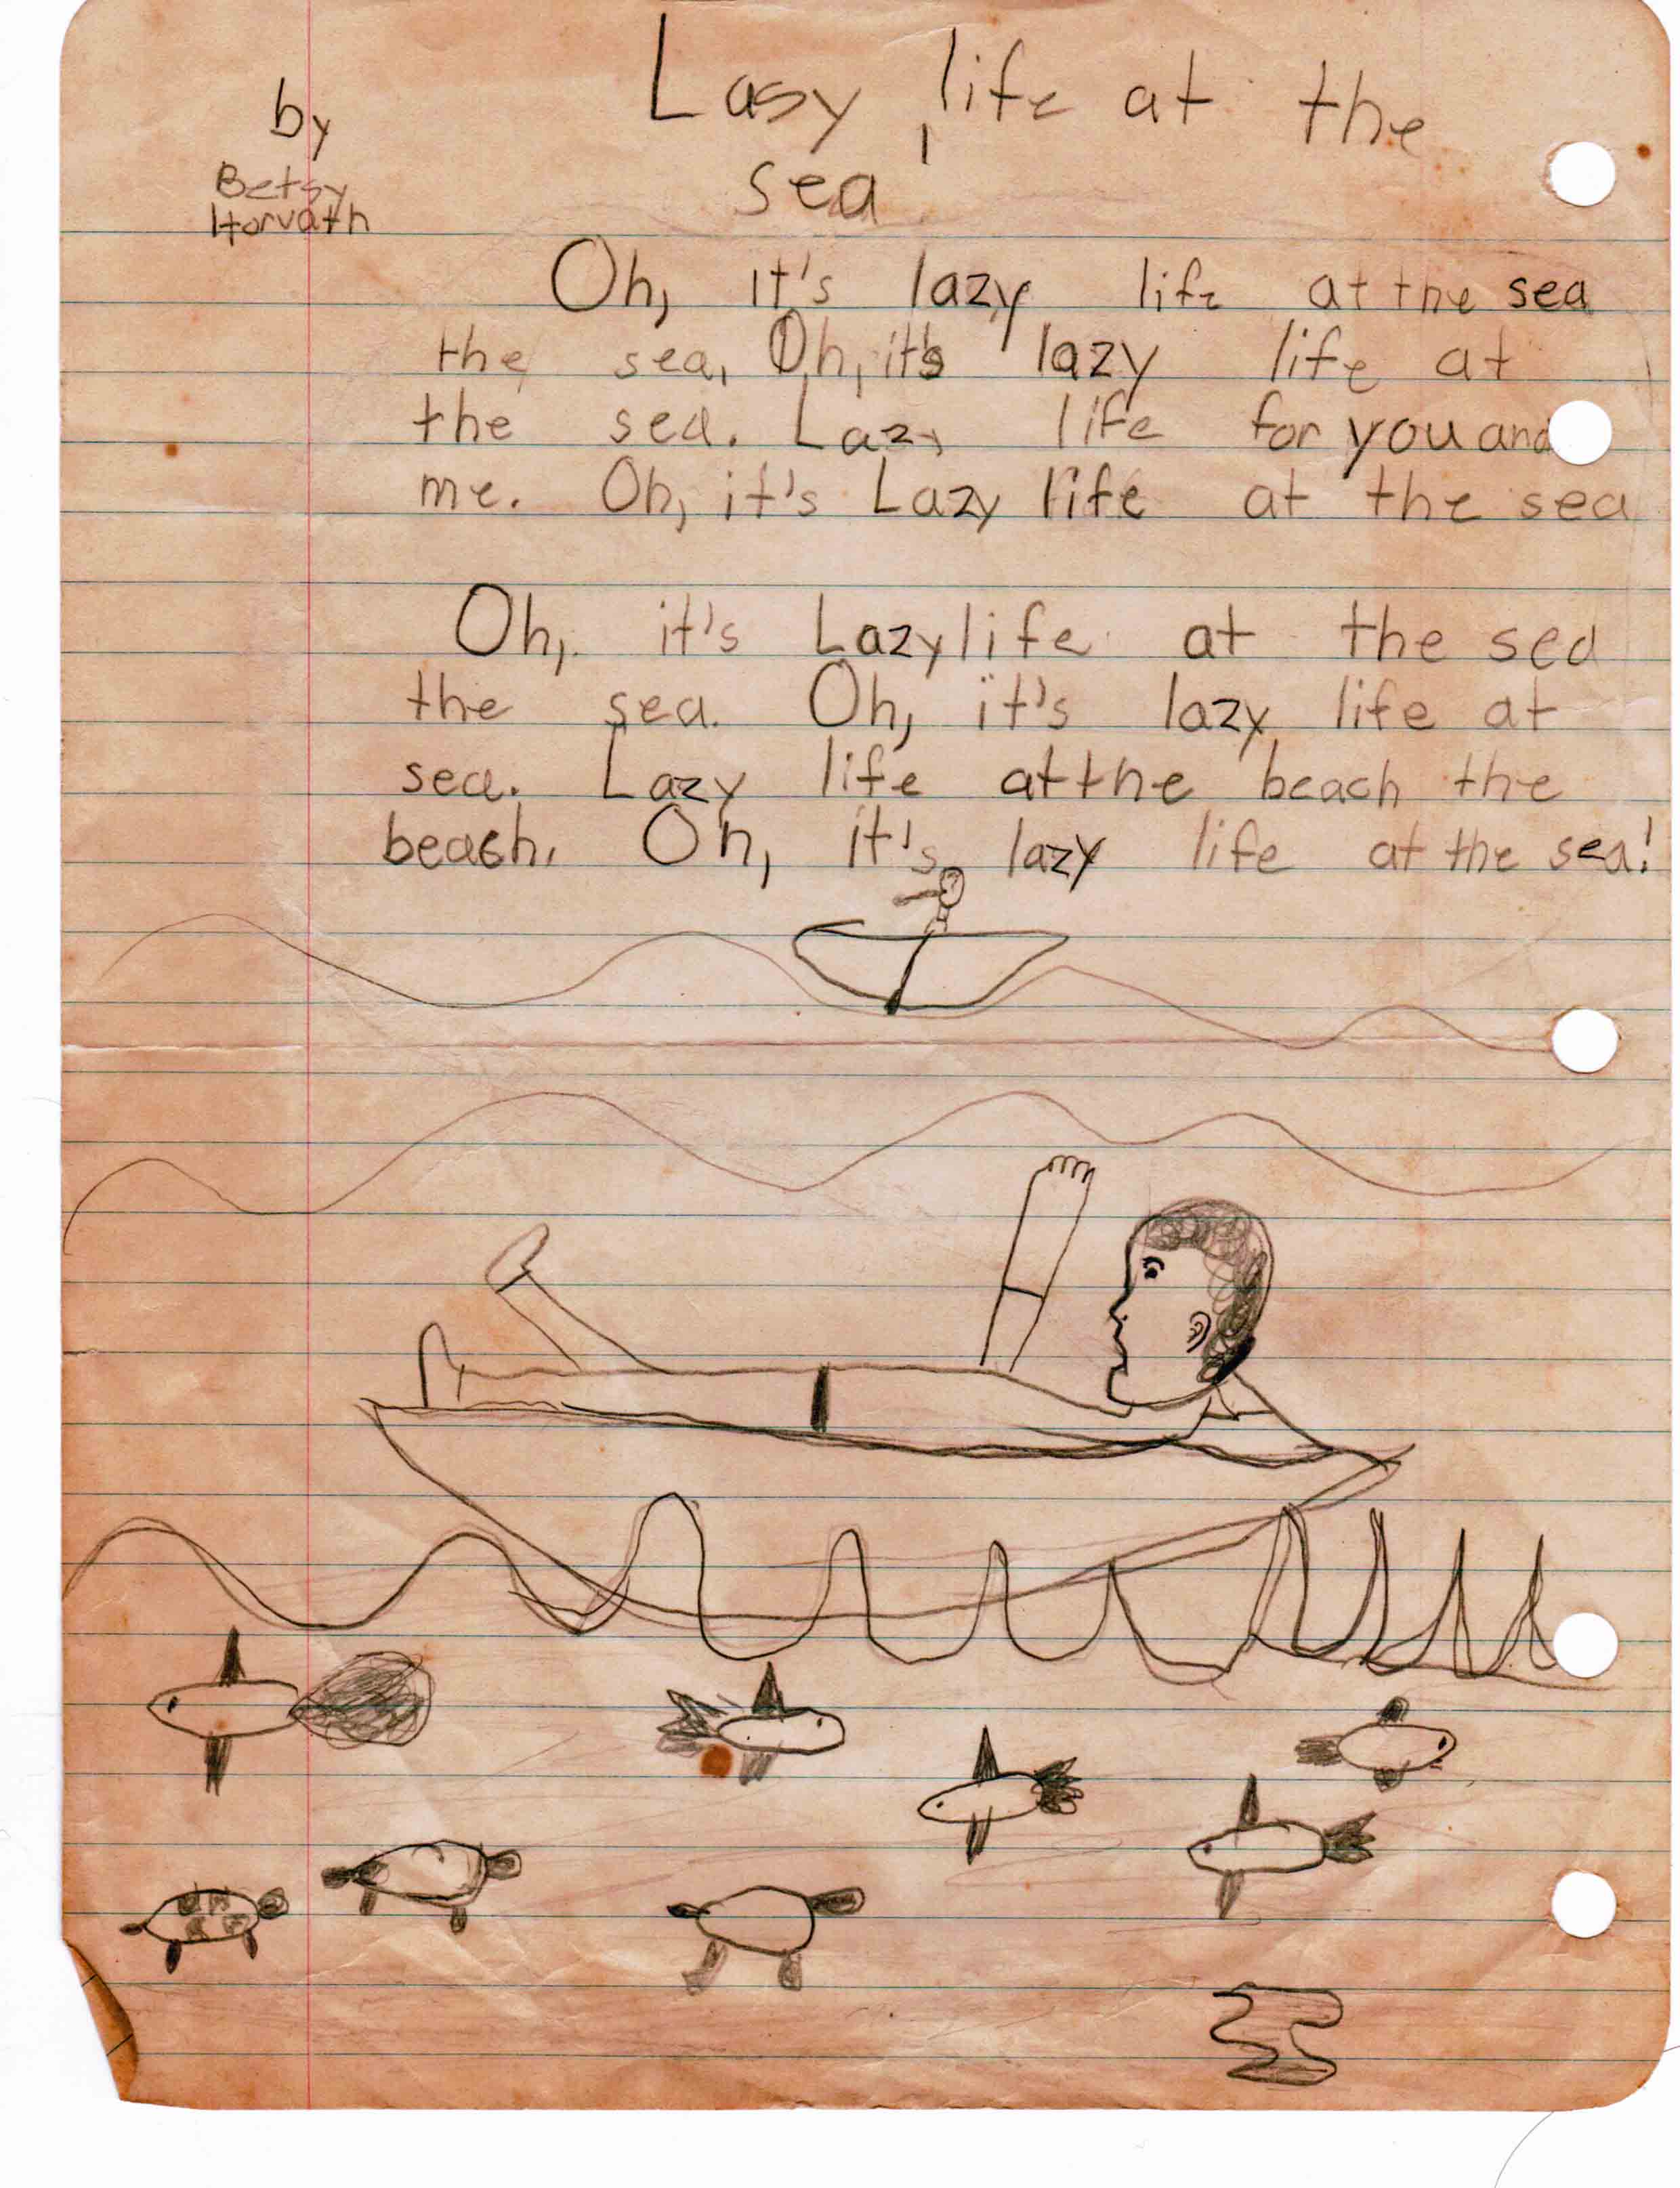 Lasy life at the
sea
by
Betsy
Horvath
Oh, it's lazy life at the sea
the sea, Oh, it's lazy life at
the sea. Lazy life for you and
me. Oh, it's Lazy life at the sea
Oh, it's Lazy life at the sea
the sea. Oh, it's lazy life at
sea. Lazy life at the beach the
beach. Oh, it's lazy life at the sea!